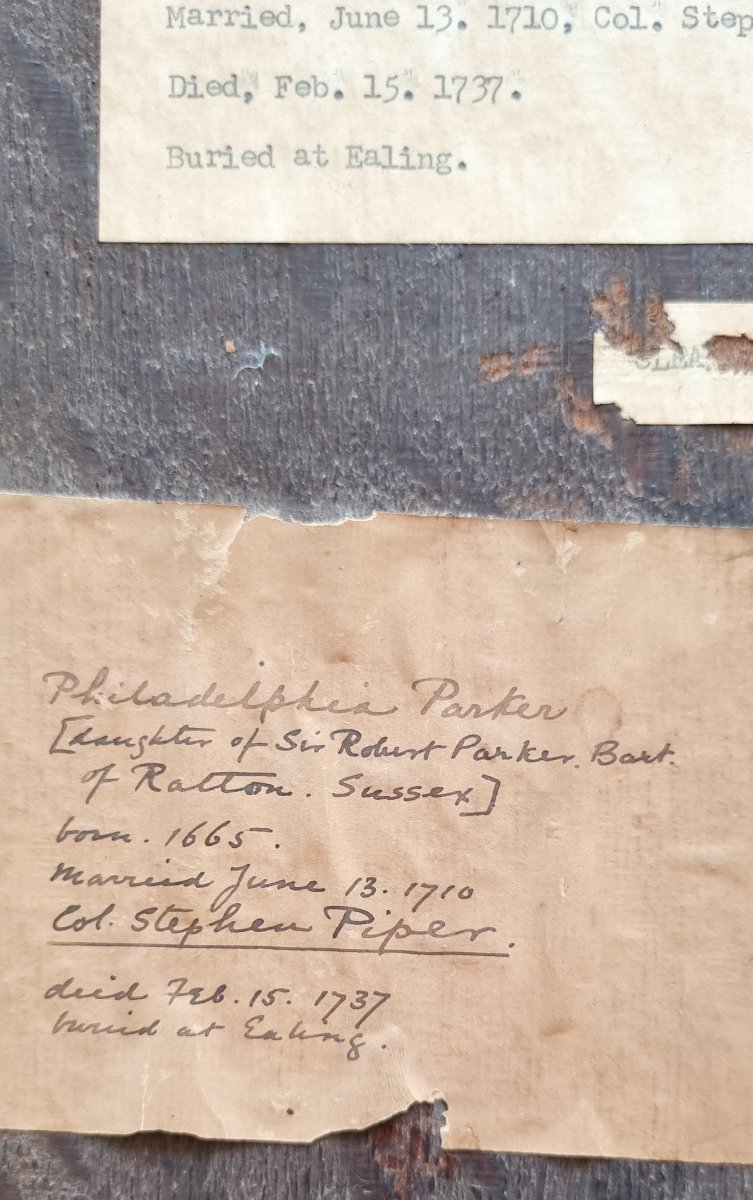 Married, June 13. 1710, Col. Step
Died, Feb. 15. 1737.
Buried at Ealing.
CLEA
Philadelphia Parker
[daughter of Sir Robert Parker. Bart.
of Ratton. Sussex]
born. 1665.
Married June 13. 1710
Col. Stephen Piper.
died Feb. 15. 1737
buried at Ealing.